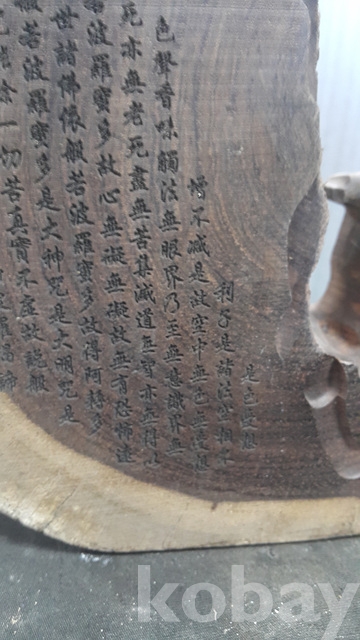 是色受想
利子是諸法空相不
增不減是故空中無色無受想
色聲香味觸法無眼界乃至無意識界無
死亦無老死盡無苦集滅道無智亦無得以
若波羅蜜多故心無礙無礙故無有恐怖遠
世諸佛依般若波羅蜜多故得阿耨多
般若波羅蜜多是大神咒是大明咒是
能除一切苦真實不虛故說般
kobay